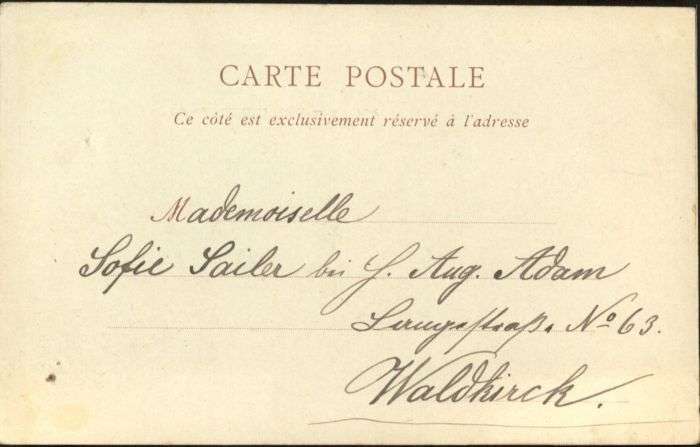 CARTE POSTALE
Ce côté est exclusivement réservé à l'adresse
Mademoiselle
Sofie Sailer bei H. Aug. Adam
Langestraße No 63.
Waldkirch.